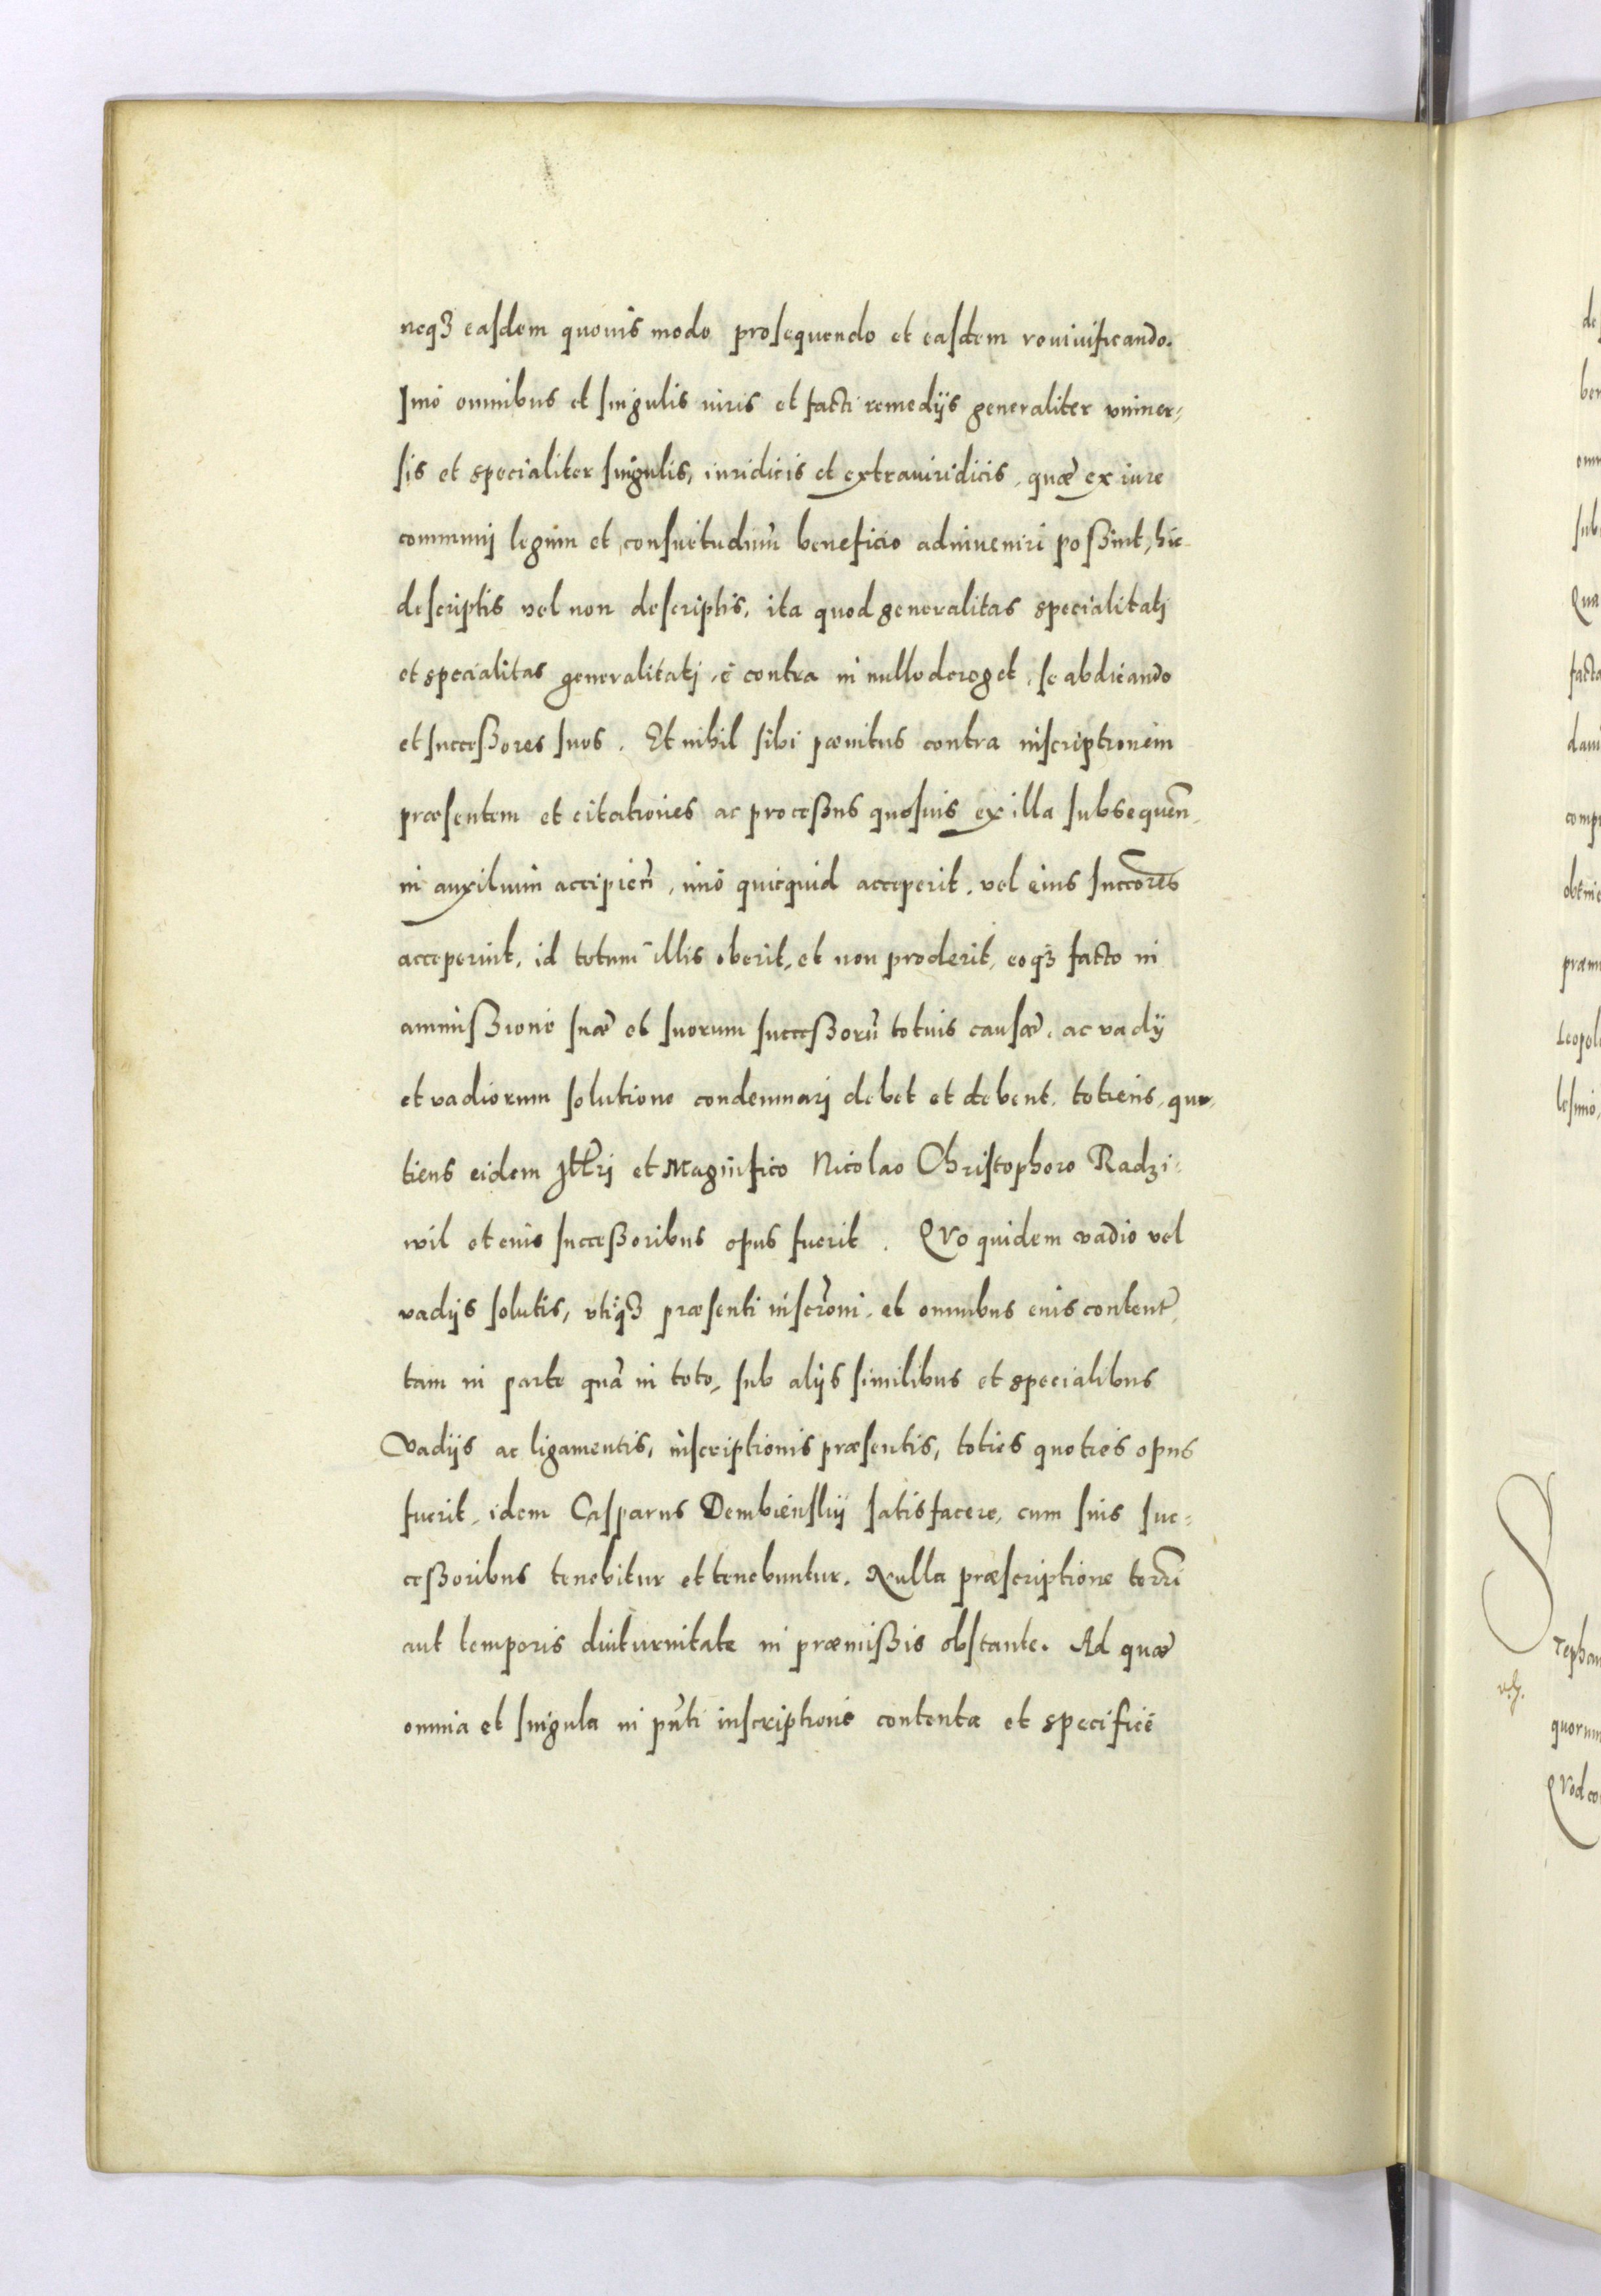 neqꝫ easdem quouis modo prosequendo et easdem reuiuificando.
Imò omnibus et singulis iuris et facti remedijs generaliter vniuer-
sis et specialiter singulis, iuridicis et extraiuridicis, quæ ex iure
communj legum et consuetudinũ beneficio adinueniri poßint, hic
descriptis vel non descriptis, ita quod generalitas specialitatj
et specialitas generalitatj, è contra in nullo deroget, se abdicando
et succeßores suos. Et nihil sibi pænitus contra inscriptionem
præsentem et citationes ac proceßus quosuis ex illa subsequeñ
in auxilium accipieñ, imò quicquid acceperit, vel eius succores
acceperint, id totum illis oberit, et non proderit, eoqꝫ facto in
ammißione suæ et suorum succeßorũ totius causæ, ac vadij
et vadiorum solutione condemnarj debet et debent, totiens, quo-
tiens eidem Jllrj et Magnifico Nicolao Christophoro Radzi-
wil et eius succeßoribus opus fuerit. Quo quidem vadio vel
vadijs solutis, vtiqꝫ præsenti inscroni, et omnibus eius content
tam in parte quã in toto, sub alijs similibus et specialibus
Vadijs ac ligamentis, inscriptionis præsentis, toties quoties opus
fuerit, idem Casparus Dembienskij satisfacere, cum suis suc-
ceßoribus tenebitur et tenebuntur. Nulla præscriptione terrĩ
aut temporis diuturnitate in præmißis obstante. Ad quæ
omnia et singula in pñti inscriptione contenta et specificè